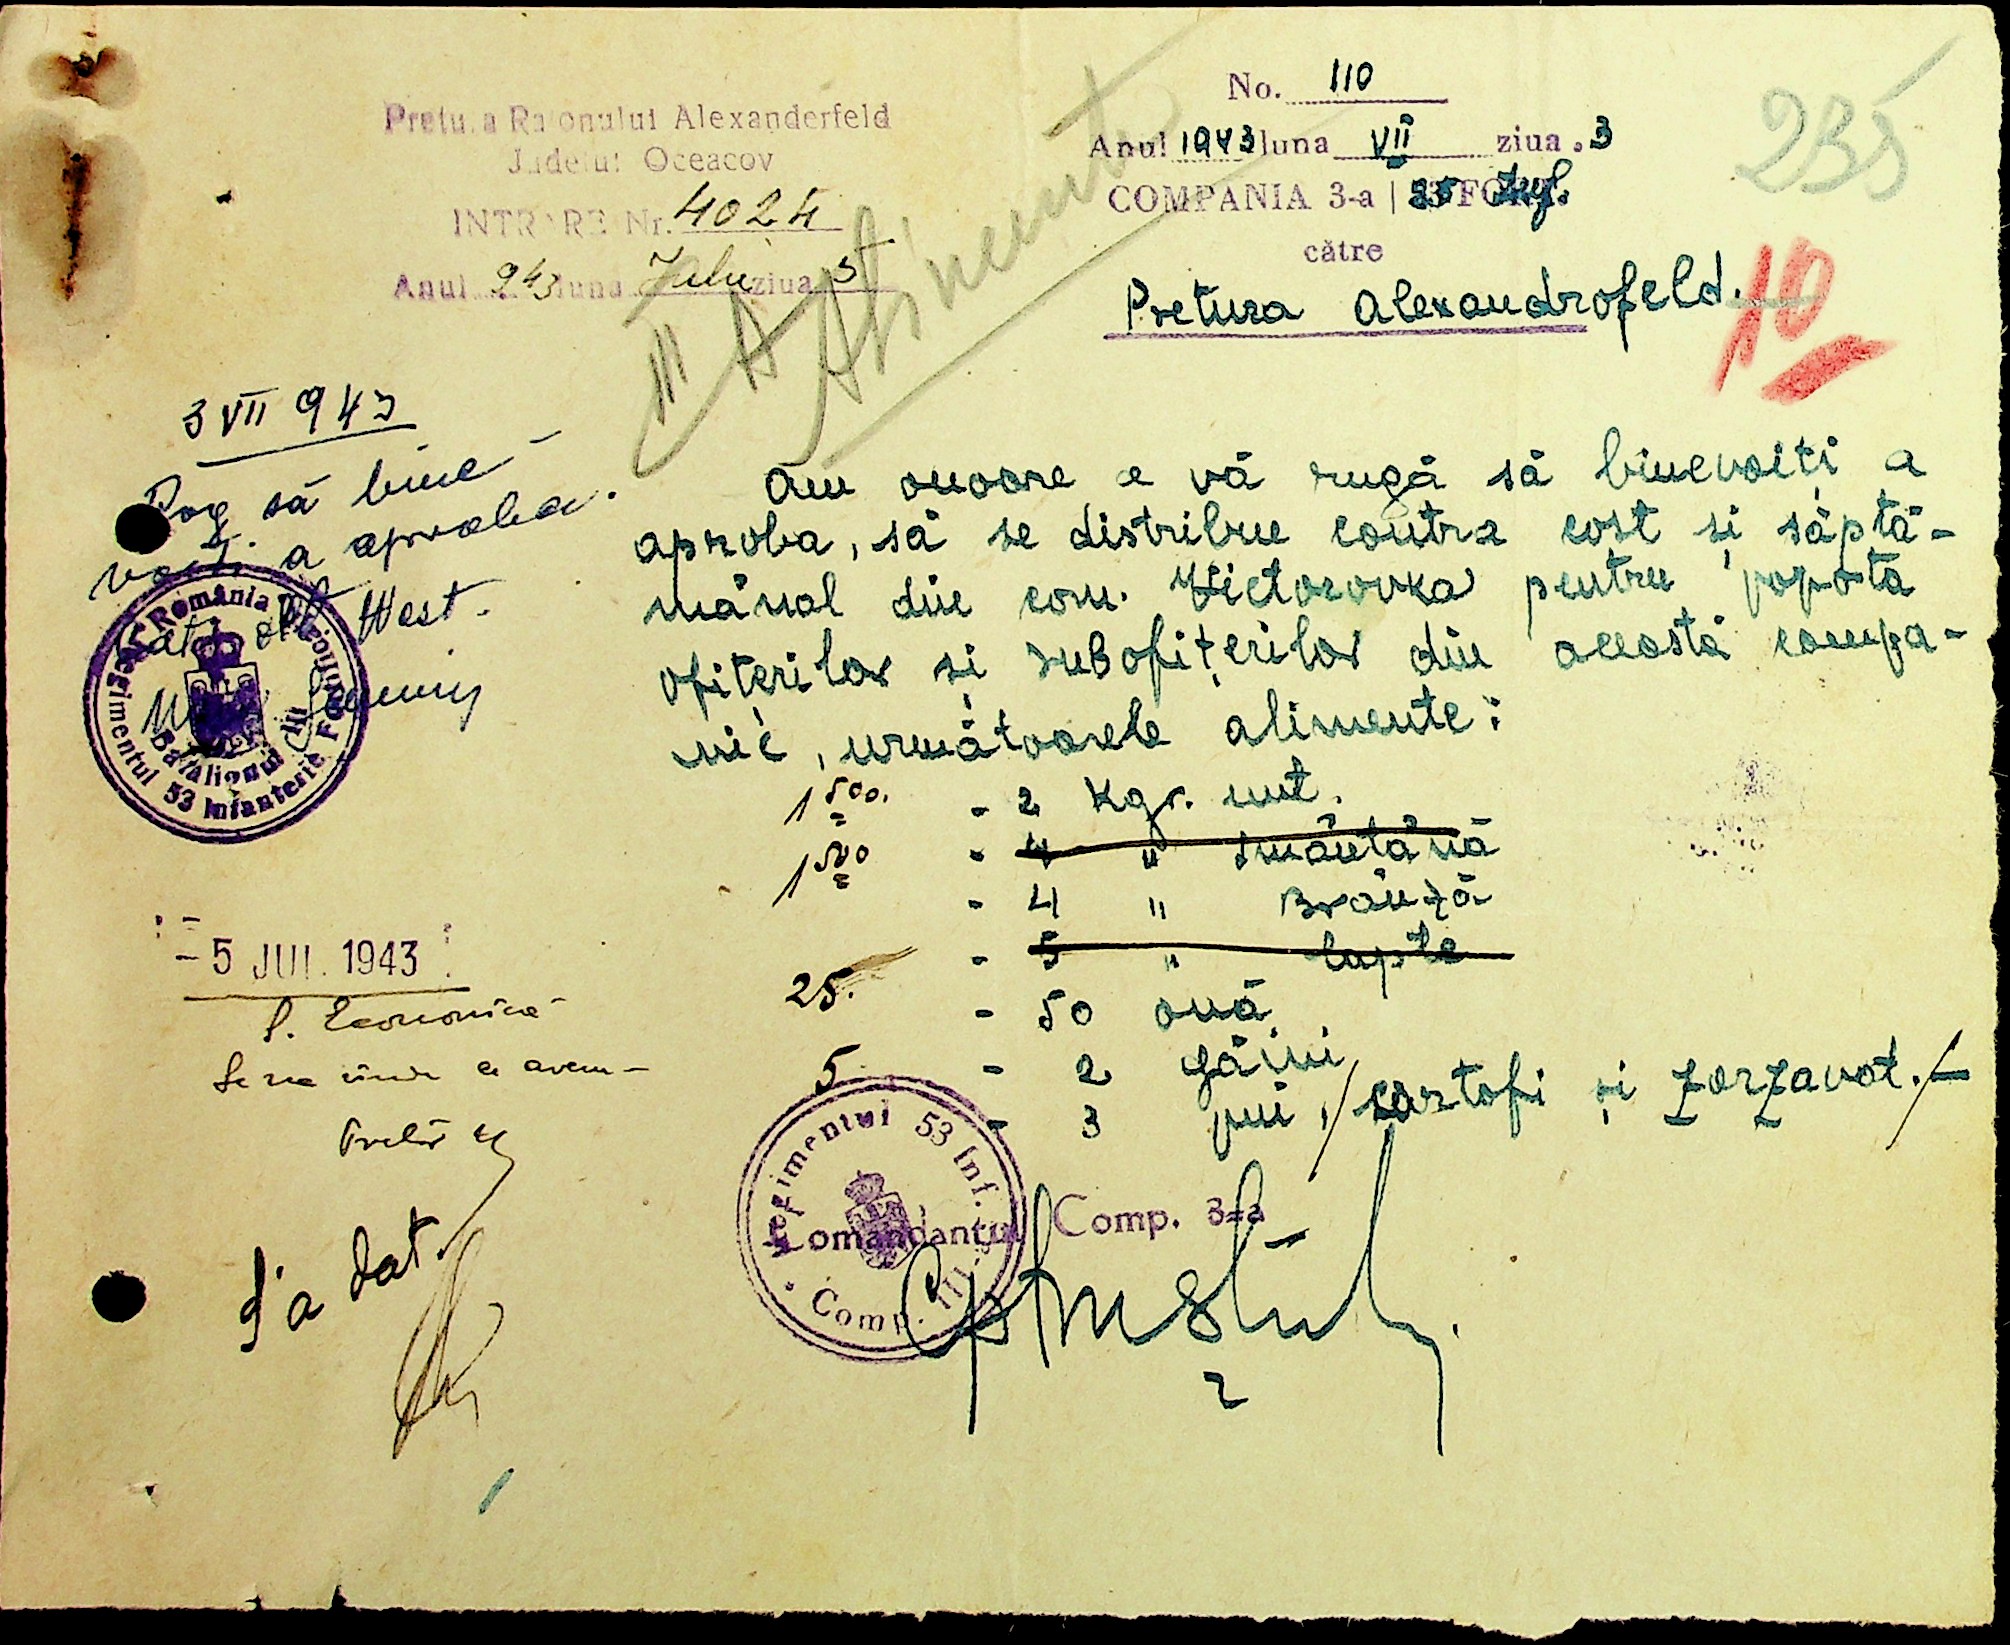 Pretura Raionului Alexanderfeld
Judetul Oceacov
INTRARE Nr. 4024
Anul 943 luna Iulie ziua 5
No. 110
Anul 1943 luna VII ziua 3
COMPANIA 3-a
către
Pretura Alexandrofeld.
235
10
III A
Alimente
3 VII 943
Rog să bine-
voiți a aproba.
West.
România
Regimentul 53 Infanterie
Batalionul III
Am onoare a vă rugă să binevoiți a
aproba, să se distribue contra cost și săptă-
mânal din com. Victorovka pentru popota
ofițerilor și subofițerilor din acéastă compa-
nie, următoarele alimente:
1 500. - 2 Kgr. unt.
- 4 " smântână
1 500 - 4 " Brânză
- 5 " lapte
25. - 50 ouă
5 - 2 găini
- 3 pui, cartofi și zarzavat.-
- 5 JUL. 1943
S. Economică
avem-
Pretor
S'a dat.
Regimentul 53 Inf.
Comp. III
Comandantul Comp. 3-a